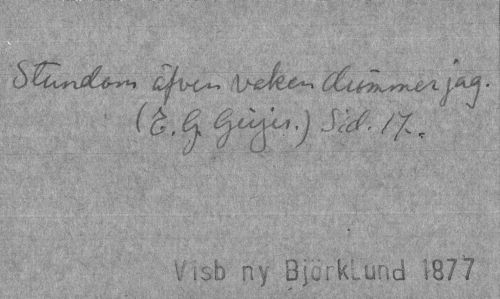 Stundom äfven vaken drömmer jag.
(E. G. Geijer.) Sid. 17.
Visb ny Björklund 1877